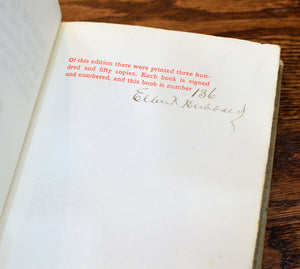 Of this edition there were printed three hun-
dred and fifty copies. Each book is signed
and numbered, and this book is number 136
Elbert Hubbard